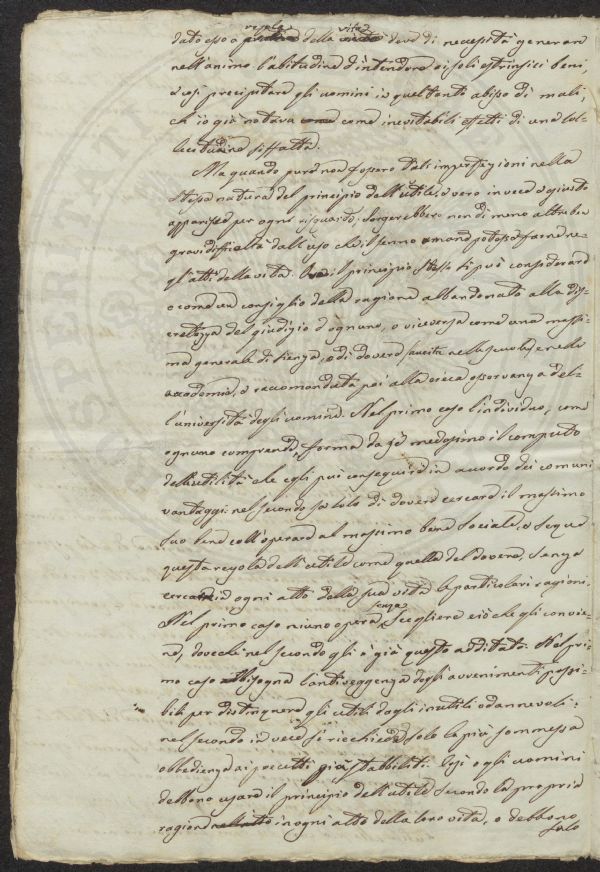 regola vita
dato esso a della deve di necessità generare
nell'animo l'abitudine d'intendere ai soli estrinsici beni,
e così precipitare gli uomini in quel tanti abisso di mali,
ch'io già notava come inevitabili effetti di una sol-
lecitudine siffatta.
Ma quando pure non fossero tali imperfezioni nella
stessa natura del principio dell'utile, e vero invece e giusto
apparisse per ogni risguardo; sorgerebbero non di meno altre ben
gravi difficoltà dall'uso che il senno umano potesse farne ne-
gl'atti della vita. il principio stesso si può considerare
o come un consiglio della ragione abbandonato alla dis-
cretezza del giudizio d'ognuno, o viceversa come una massi-
ma generale di scienza, e di dovere sancita nelle scuole, e nelle
accademie, e raccomandata poi alla cieca osservanza del-
l'università degli uomini. Nel primo caso l'individuo, come
ognuno comprende, forma da se medesimo il computo
dell'utilità che egli può conseguire in accordo dei comuni
vantaggi: nel secondo sa solo di dovere cercare il massimo
suo bene coll'operare al massimo bene sociale, e segue
questa regola dell'utile come quella del dovere, senza
cercare in ogni atto della sua vita le particolari ragioni.
senza
Nel primo caso niuno opera scegliere ciò che gli convie-
ne, dove che nel secondo gli è già questo additato. Nel pri-
mo caso bisogna l'antiveggenza degli avvenimenti possi-
bili per distinguere gli utili dagli inutili o dannevoli:
nel secondo invece si richiede solo la più sommessa
obbedienza ai precetti già stabiliti. Così o gli uomini
debbono usare il principio dell'utile secondo la propria
ragione in ogni atto della loro vita, o debbono
solo